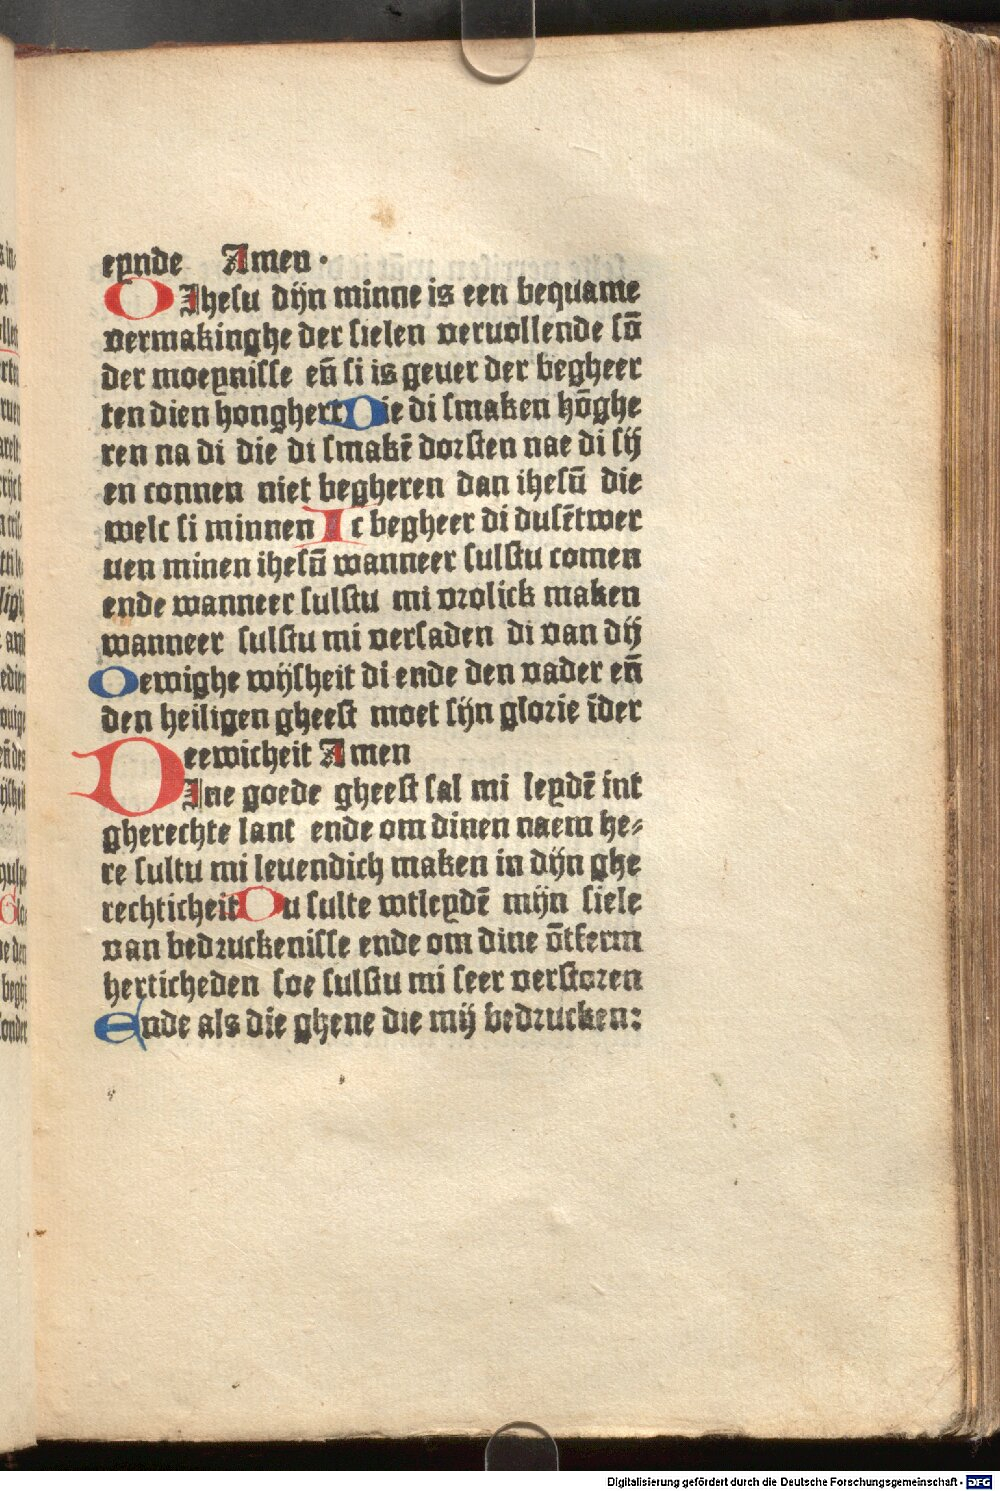 eynde Amen·
O Ihesu dijn minne is een bequame
vermakinghe der sielen veruollende sō
der moeynisse eñ si is geuer der begheer
ten dien honghert Die di smaken hōghe
ren na di die di smakē dorsten nae di sij
en connen niet begheren dan ihesū die
welc si minnen Ic begheer di dusētwer
uen minen ihesū wanneer sulstu comen
ende wanneer sulstu mi vrolick maken
wanneer sulstu mi versaden di van dij
O ewighe wijsheit di ende den vader eñ
den heiligen gheest moet sijn glorie īder
eewicheit Amen
DIne goede gheest sal mi leydē int
gherechte lant ende om dinen naem he⸗
re sultu mi leuendich maken in dijn ghe
rechticheit Du sulte wtleydē mijn siele
van bedruckenisse ende om dine ōtferm
herticheden soe sulstu mi seer verstoren
Ende als die ghene die mij bedrucken:
Digitalisierung gefördert durch die Deutsche Forschungsgemeinschaft - DFG